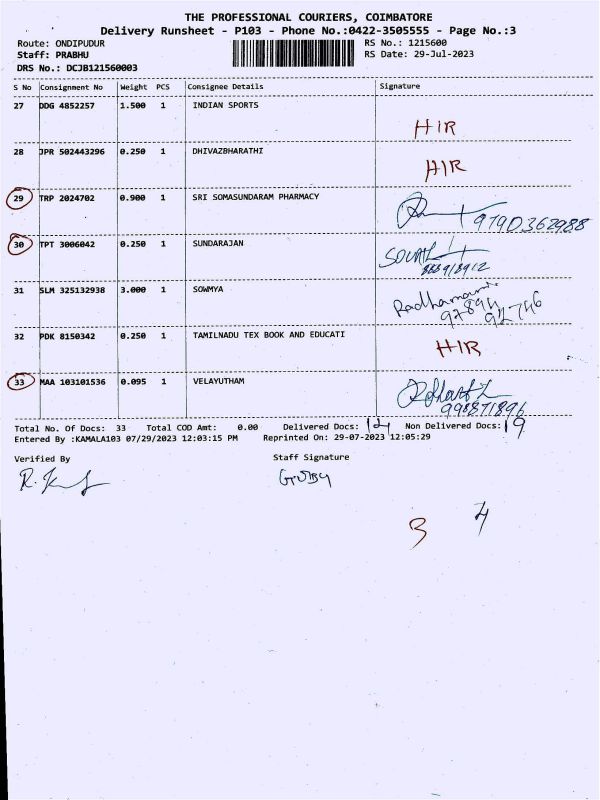 THE PROFESSIONAL COURIERS, COIMBATORE
Delivery Runsheet - P103 - Phone No.:0422-3505555 - Page No.:3
Route: ONDIPUDUR RS No.: 1215600
Staff: PRABHU RS Date: 29-Jul-2023
DRS No.: DCJB121560003
S No Consignment No Weight PCS Consignee Details Signature
27 DDG 4852257 1.500 1 INDIAN SPORTS
HIR
28 JPR 502443296 0.250 1 DHIVAZBHARATHI
HIR
29 TRP 2024702 0.900 1 SRI SOMASUNDARAM PHARMACY
9790362988
30 TPT 3006042 0.250 1 SUNDARAJAN
31 SLM 325132938 3.000 1 SOWMYA
Radhamani
97894
92746
32 PDK 8150342 0.250 1 TAMILNADU TEX BOOK AND EDUCATI
HIR
33 MAA 103101536 0.095 1 VELAYUTHAM
998871896
Total No. Of Docs: 33 Total COD Amt: 0.00 Delivered Docs: 14 Non Delivered Docs: 19
Entered By :KAMALA103 07/29/2023 12:03:15 PM Reprinted On: 29-07-2023 12:05:29
Verified By Staff Signature
3 4